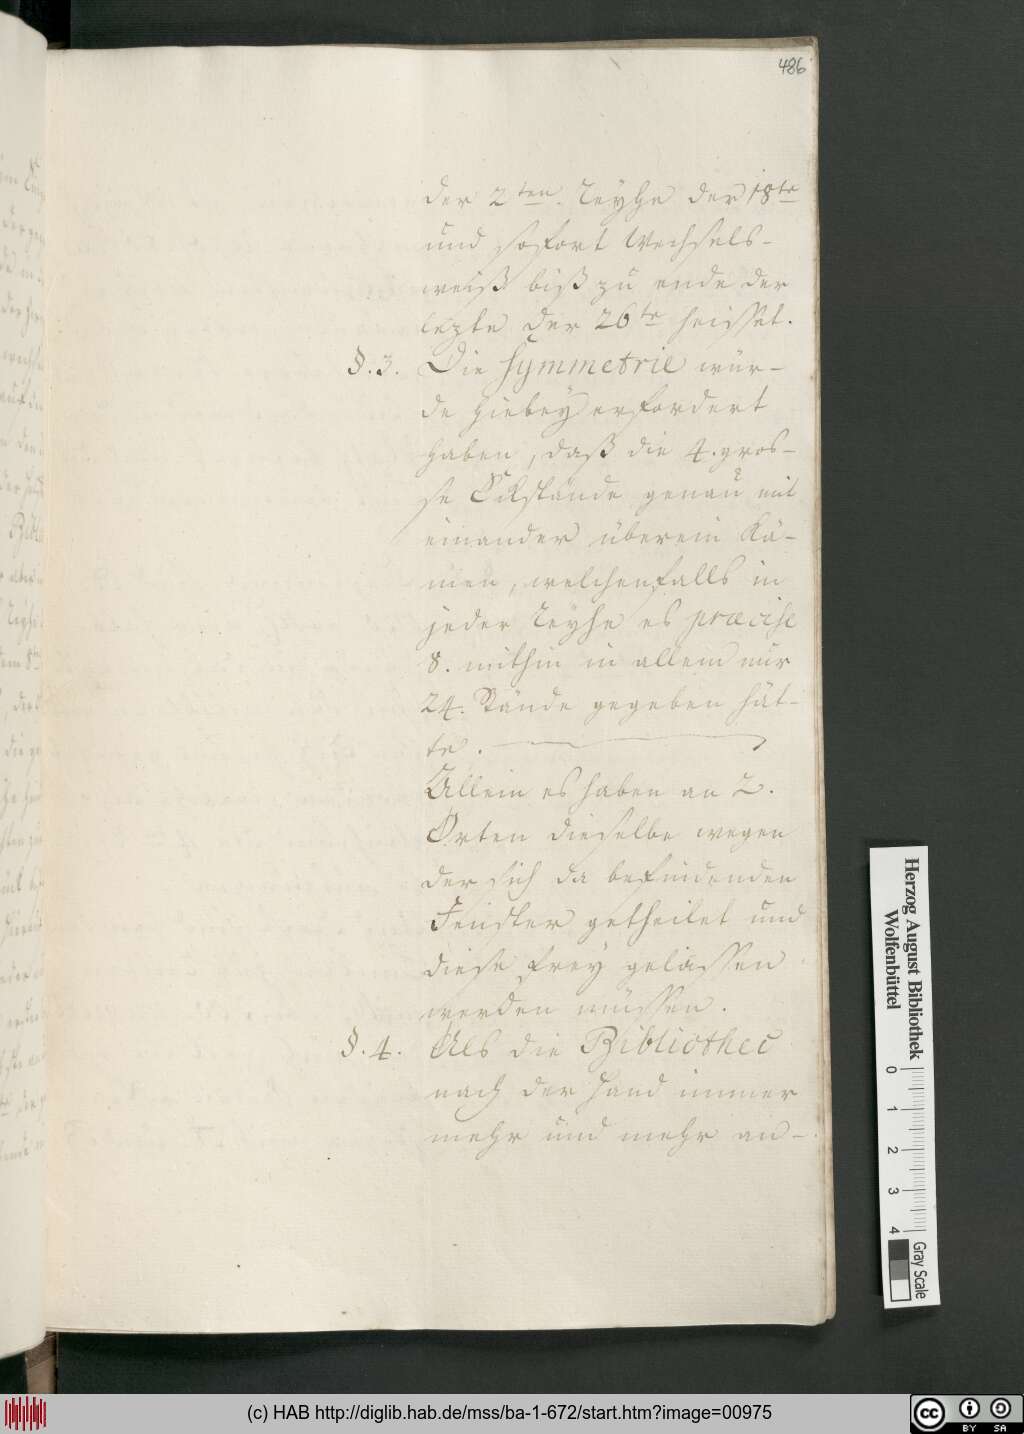 486
der 2ten Reyhe der 18te
und sofort Wechsels-
weiß biß zu ende der
lezte der 26te heisset.
§. 3. Die Symmetrie wür-
de hiebey erfordert
haben, daß die 4. gros-
se Eckstände genau mit
einander überein kä-
men, welchenfalls in
jeder Reyhe es præcise
8. mithin in allem nur
24. Stände gegeben hät-
te.
Allein es haben an 2.
Orten dieselbe wegen
der sich da befindenden
Fenster getheilet und
diese frey gelassen
werden müssen.
§. 4. Als die Bibliothec
nach der Hand immer
mehr und mehr an-
Herzog August Bibliothek
Wolfenbüttel
0 1 2 3 4
Gray Scale
(c) HAB http://diglib.hab.de/mss/ba-1-672/start.htm?image=00975
cc BY SA